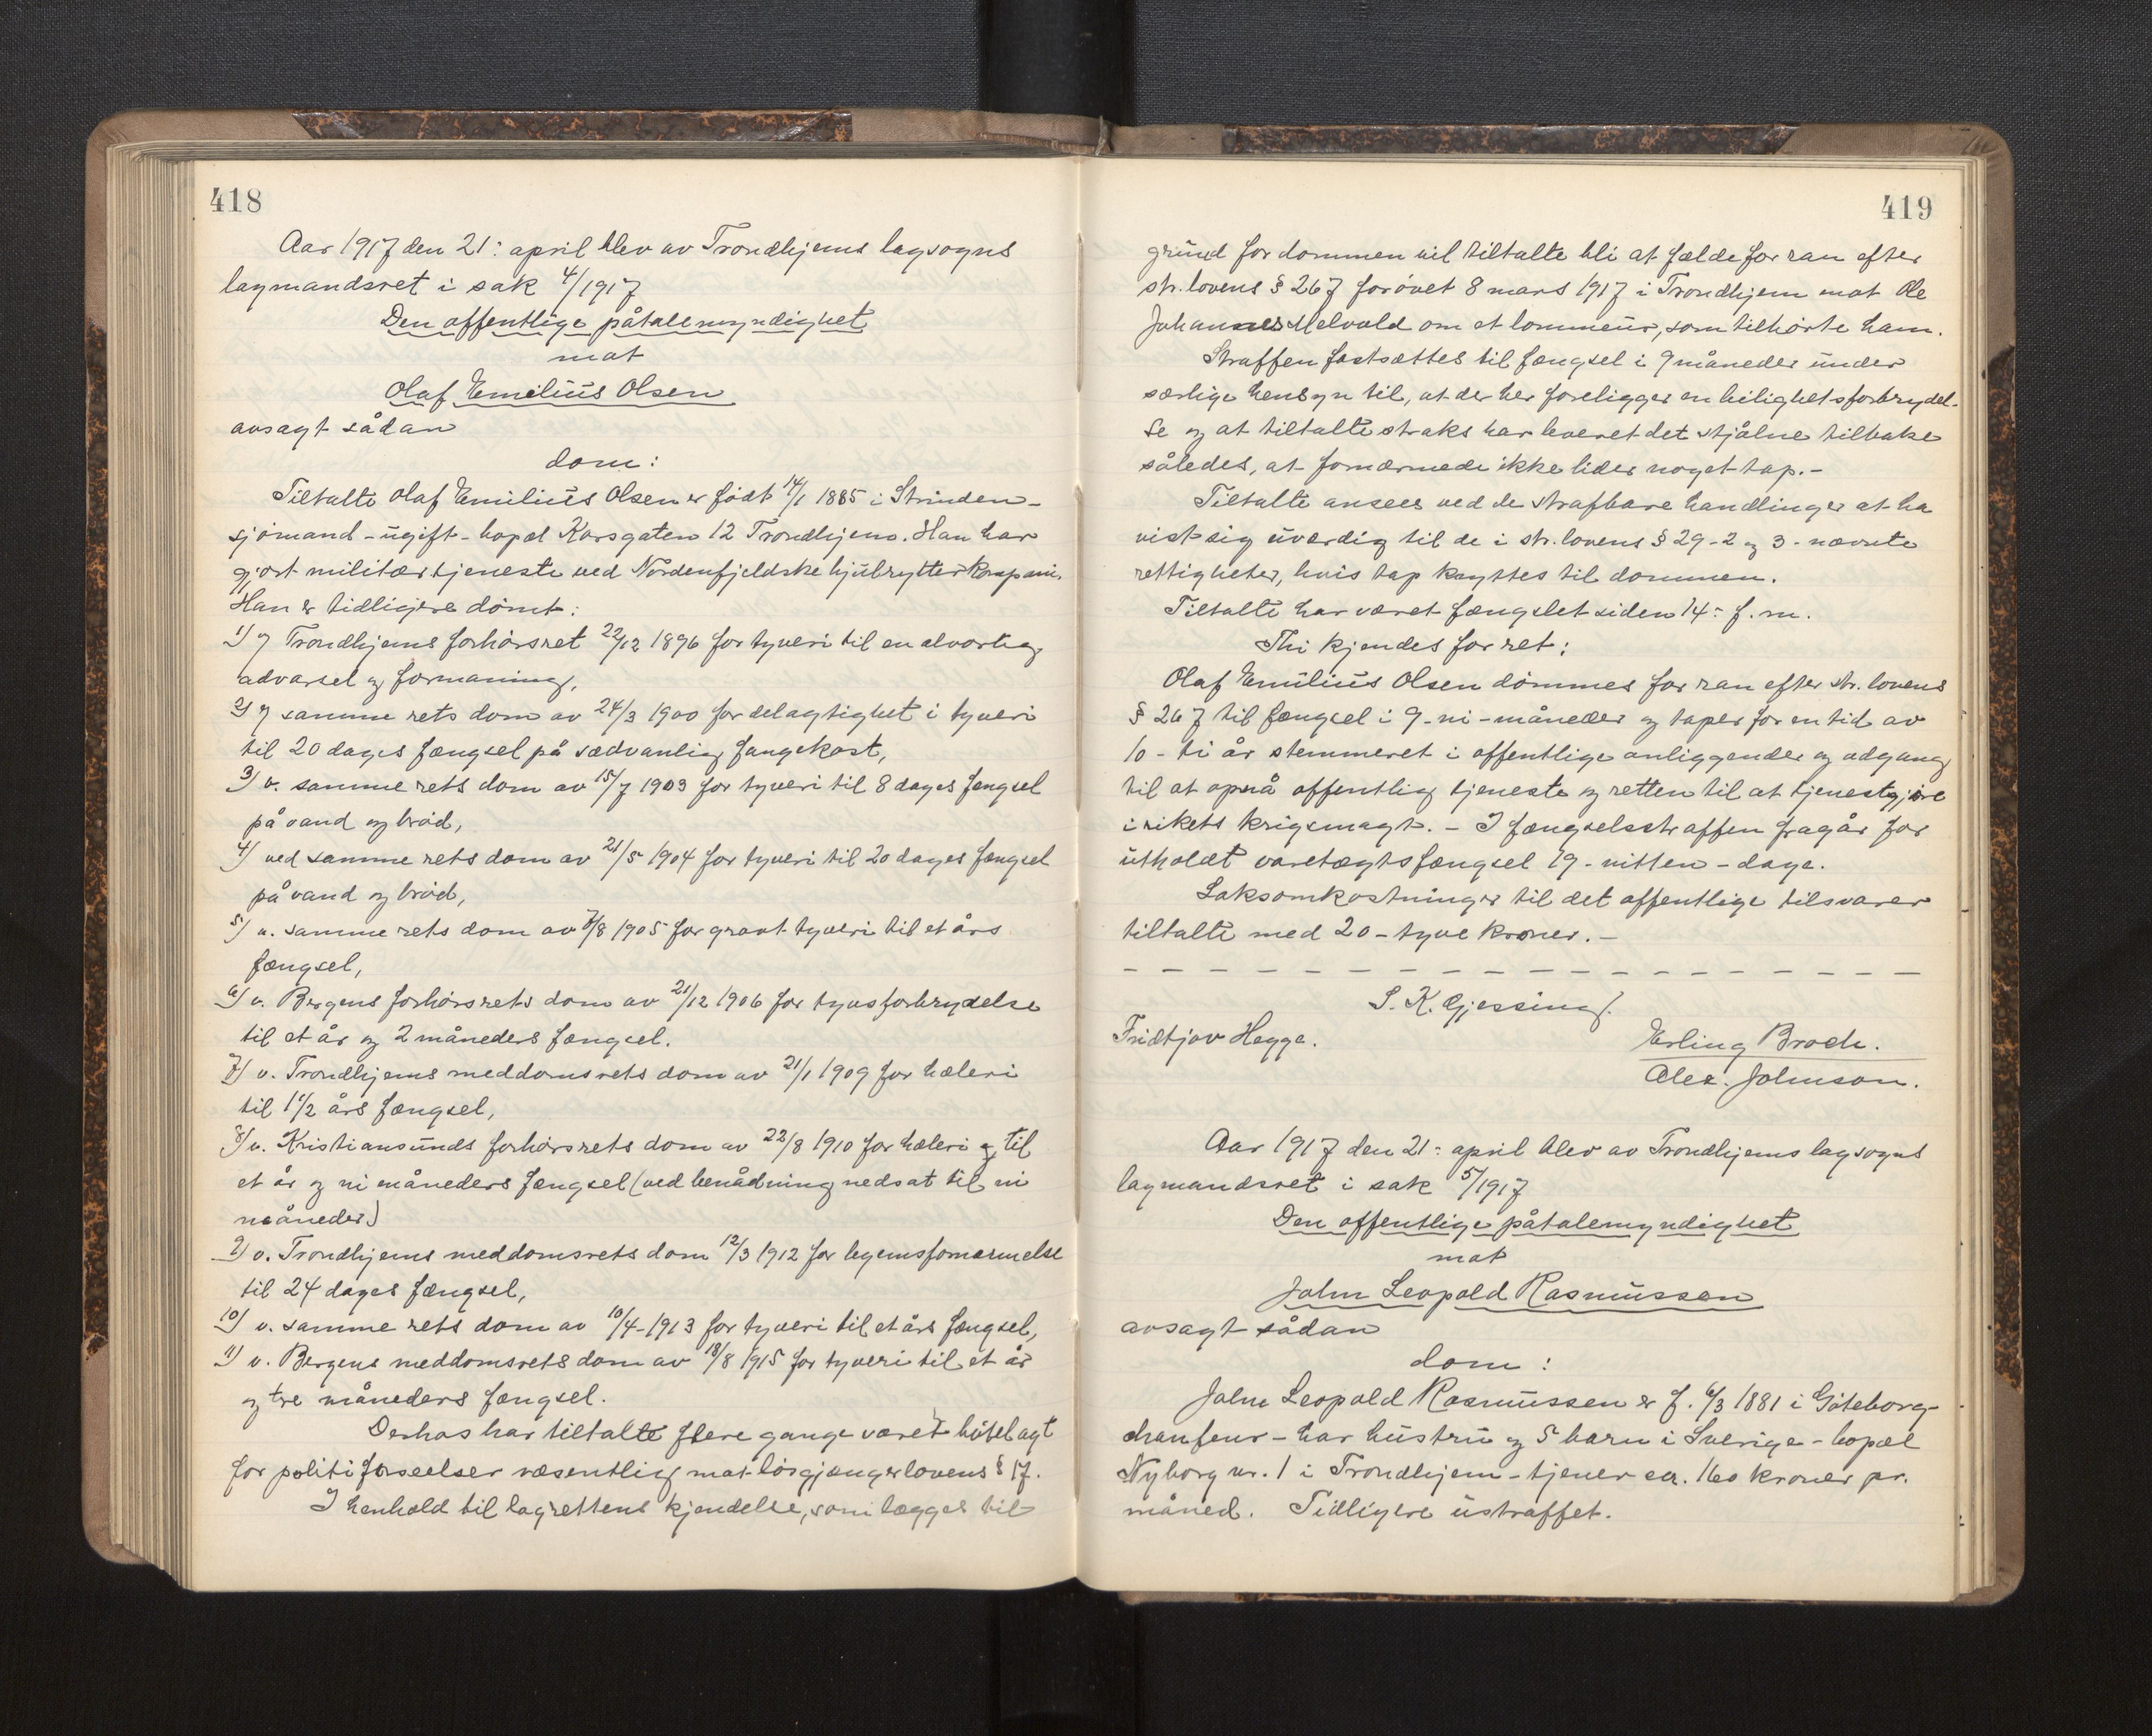 418
Aar 1917 den 21: april blev av Trondhjems lagsogns
lagmandsret i sak 4/1917
Den offentlige påtalemyndighet
mot
Olaf Emilius Olsen
avsagt sådan
dom:
Tiltalte Olaf Emilius Olsen er født 14/1 1885 i Strinden -
sjømand - ugift - bopæl Korsgaten 12 Trondhjem. Han har
gjort militærtjeneste ved Nordenfjeldske hjulrytterkompani.
Han er tidligere dømt:
1) v Trondhjems forhørsret 22/12 1896 for tyveri til en alvorlig
advarsel og formaning,
2) v samme rets dom av 24/3 1900 for delagtighet i tyveri
til 20 dages fængsel på sædvanlig fangekost,
3) v. samme rets dom av 15/7 1903 for tyveri til 8 dages fængsel
på vand og brød,
4) ved samme rets dom av 21/5 1904 for tyveri til 20 dages fængsel
på vand og brød,
5) v. samme rets dom av /8 1905 for grovt tyveri til et års
fængsel,
6) v. Bergens forhørsrets dom av 21/12 1906 for tyvsforbrydelse
til et år og 2 måneders fængsel.
7) v. Trondhjems meddomsrets dom av 21/1 1909 for hæleri
til 1 1/2 års fængsel,
8) v. Kristiansunds forhørsrets dom av 22/8 1910 for hæleri til
et år og ni måneders fængsel (ved benådning nedsat til ni
måneder)
9) v. Trondhjems meddomsrets dom 12/3 1912 for legemsfornærmelse
til 24 dages fængsel,
10) v. samme rets dom av 10/4-1913 for tyveri til et års fængsel,
11) v. Bergens meddomsrets dom av 18/8 1915 for tyveri til et år
og tre måneders fængsel.
Derhos har tiltalte flere gange været bøtelagt
for politiforseelser væsentlig mot løsgjængerlovens § 17.
I henhold til lagrettens kjendelse, som lægges til
419
grund for dommen vil tiltalte bli at fælde for ran efter
str. lovens § 267 forøvet 8 mars 1917 i Trondhjem mot Ole
Johannes Melvold om et lommeur, som tilhørte ham.
Straffen fastsættes til fængsel i 9 måneder under
særlige hensyn til, at der her foreligger en leilighetsforbrydel-
se og at tiltalte straks har leveret det stjålne tilbake
således, at fornærmede ikke lider noget tap. -
Tiltalte ansees ved de strafbare handlinger at ha
vist sig uværdig til de i str. lovens § 29 - 2 og 3 - nævnte
rettigheter, hvis tap knyttes til dommen.
Tiltalte har været fængslet siden 14: f. m.
Thi kjendes for ret:
Olaf Emilius Olsen dømmes for ran efter str. lovens
§ 267 til fængsel i 9 - ni - måneder og taper for en tid av
10 - ti år stemmeret i offentlige anliggender og adgang
til at opnå offentlig tjeneste og retten til at tjenestgjøre
i rikets krigsmagt. - I fængselsstraffen fragår for
utholdt varetægtsfængsel 19 - nitten - dage.
Saksomkostninger til det offentlige tilsvarer
tiltalte med 20 - tyve kroner. -
S. K. Gjessing.
Fridtjov Hegge.
Erling Broch.
Alex. Johnson.
Aar 1917 den 21: april blev av Trondhjems lagsogns
lagmandsret i sak 5/1917
Den offentlige påtalemyndighet
mot
John Leopold Rasmussen
avsagt sådan
dom:
John Leopold Rasmussen er f. 6/3 1881 i Gøteborg -
chauffeur - har hustru og 5 barn i Sverige - bopæl
Nyborg nr. 1 i Trondhjem - tjener ca. 160 kroner pr.
måned. Tidligere ustraffet.